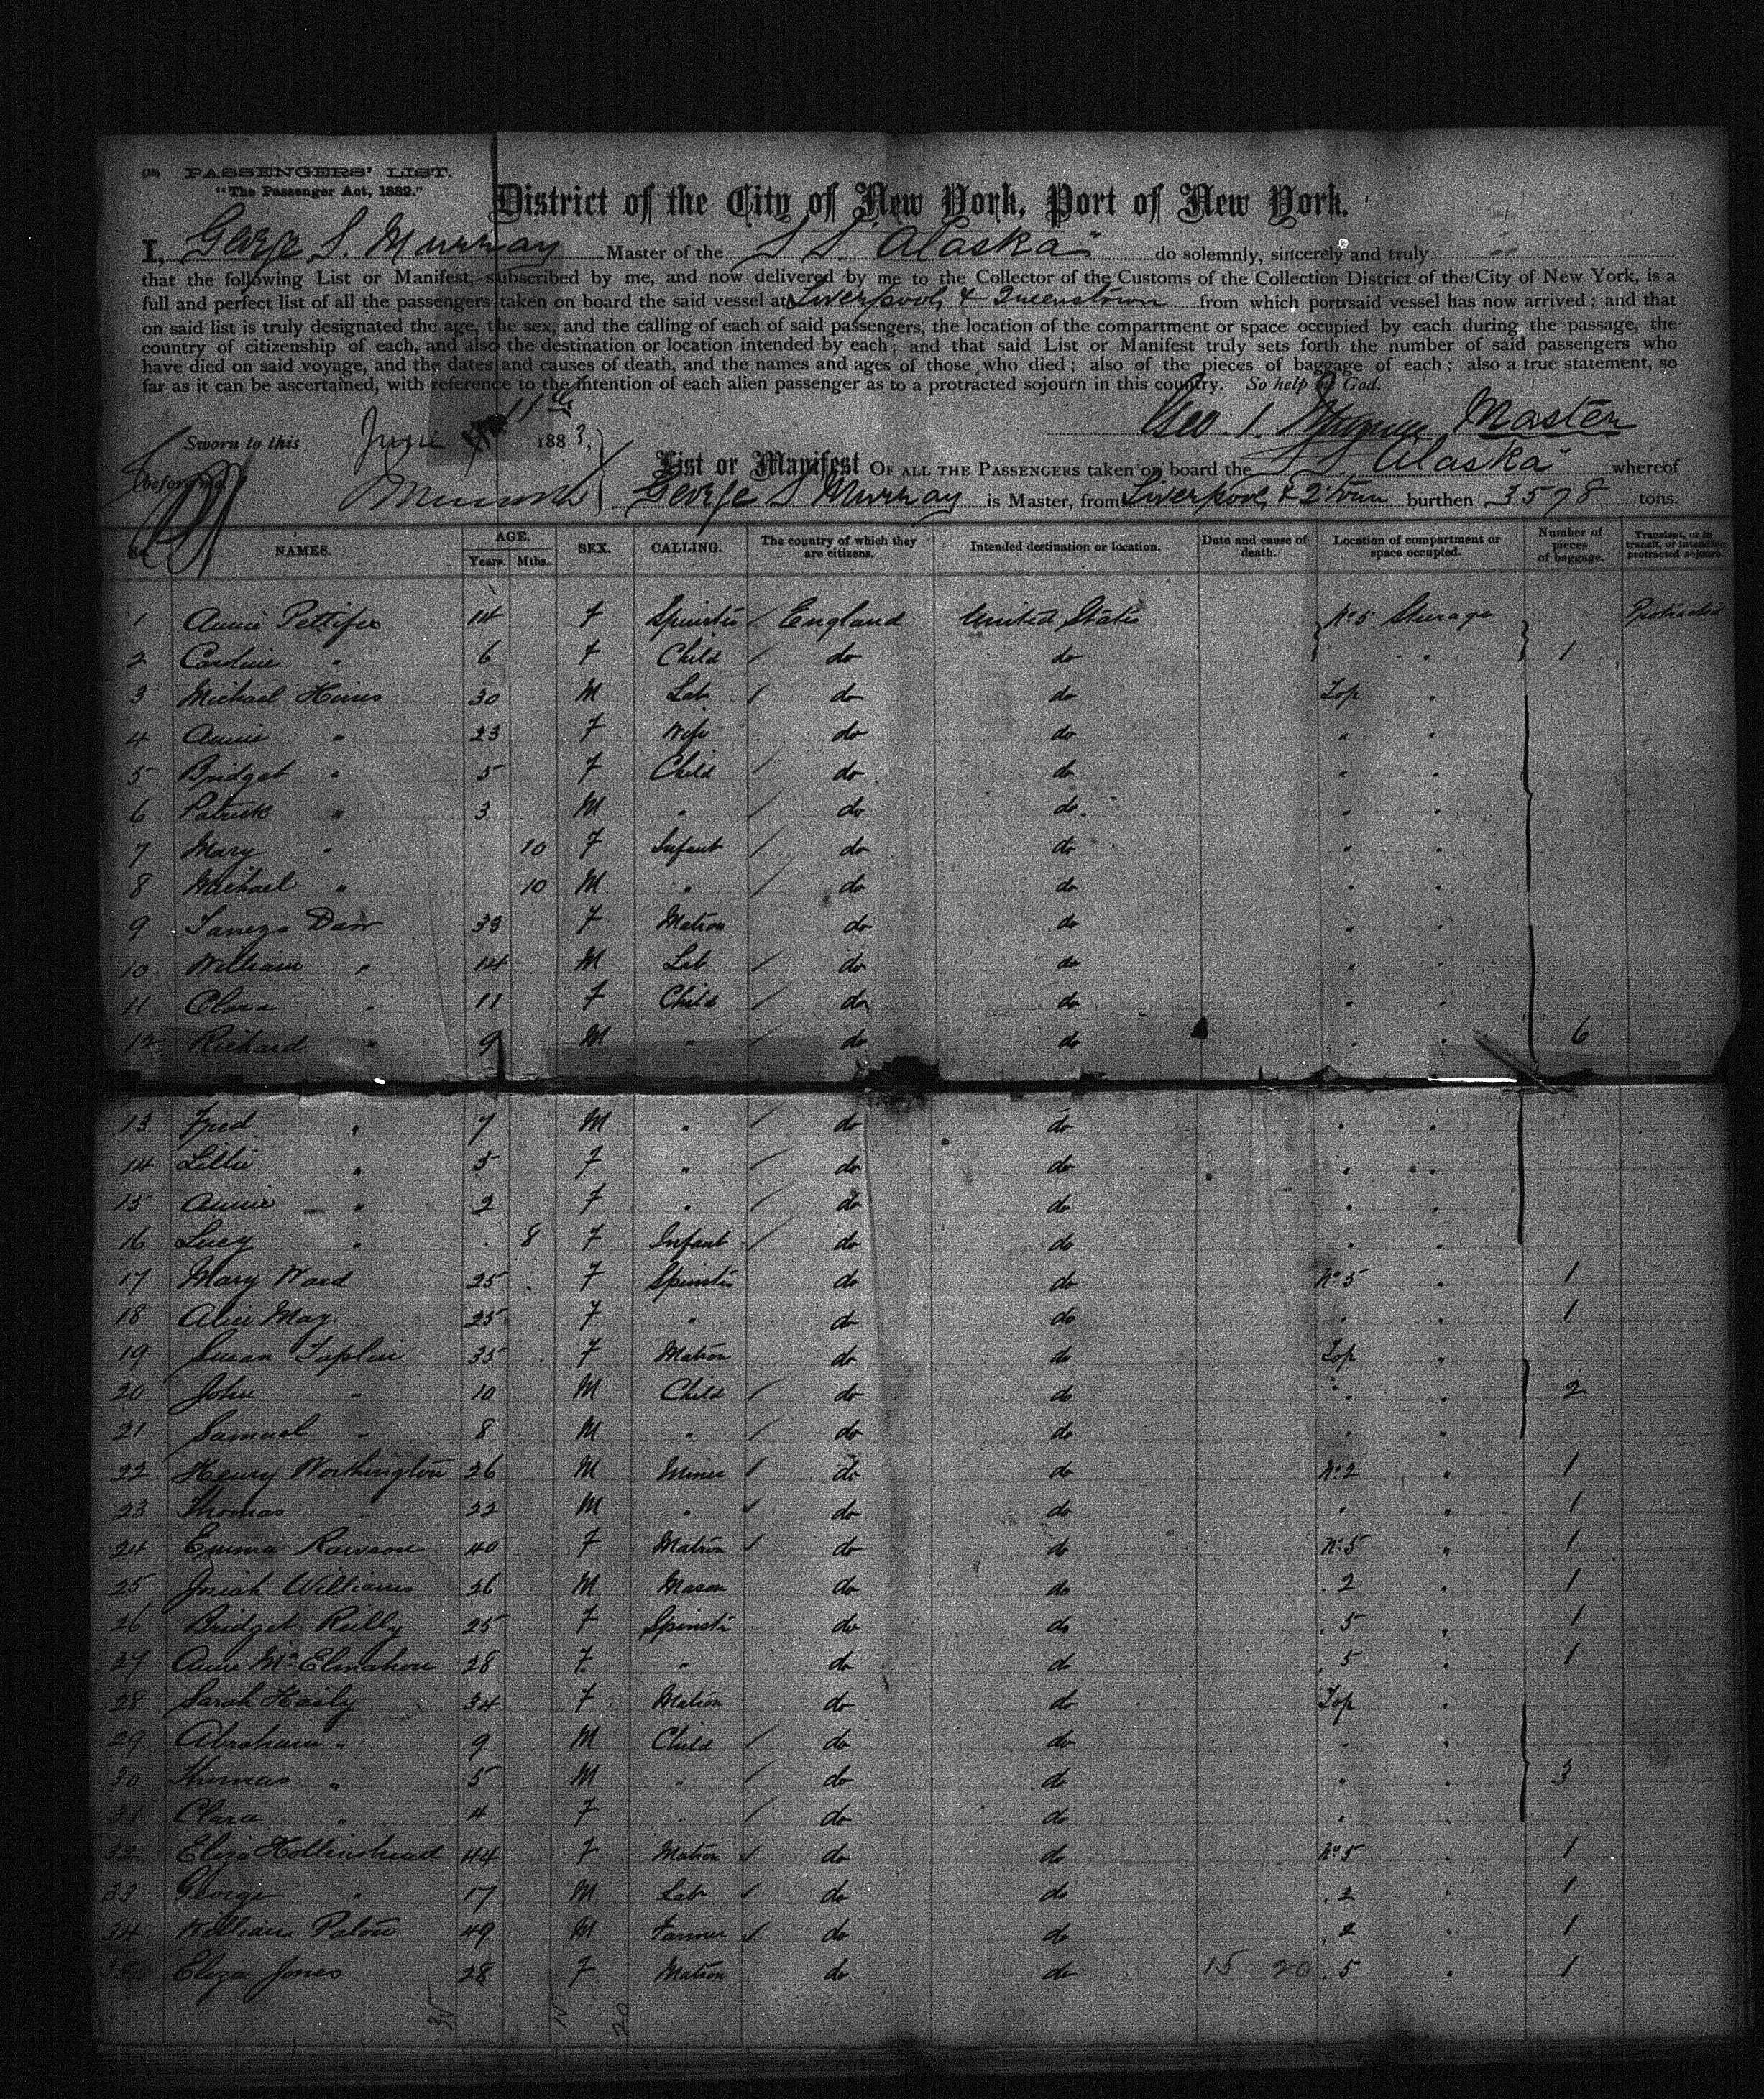 (18) PASSENGERS' LIST.
"The Passenger Act, 1882."
District of the City of New York, Port of New York.
I, George S. Murray Master of the S.S. "Alaska" do solemnly, sincerely and truly
that the following List or Manifest, subscribed by me, and now delivered by me to the Collector of the Customs of the Collection District of the City of New York, is a
full and perfect list of all the passengers taken on board the said vessel at Liverpool & Queenstown from which port said vessel has now arrived; and that
on said list is truly designated the age, the sex, and the calling of each of said passengers, the location of the compartment or space occupied by each during the passage, the
country of citizenship of each, and also the destination or location intended by each; and that said List or Manifest truly sets forth the number of said passengers who
have died on said voyage, and the dates and causes of death, and the names and ages of those who died; also of the pieces of baggage of each; also a true statement, so
far as it can be ascertained, with reference to the intention of each alien passenger as to a protracted sojourn in this country. So help me God.
Sworn to this June 11th 1883. Geo. S. Murray Master
before me
List or Manifest OF ALL THE PASSENGERS taken on board the S.S. Alaska" whereof
George S Murray is Master, from Liverpool, & 2'town burthen 3578 tons.
No. NAMES. AGE. Years. Mths. SEX. CALLING. The country of which they are citizens. Intended destination or location. Date and cause of death. Location of compartment or space occupied. Number of pieces of baggage. Transient, or in transit, or intending protracted sojourn.
1 Annie Pettifer 14 F Spinster England United States No 5 Steerage Protracted
2 Caroline " 6 F Child do do " 1
3 Michael Hines 30 M Lab do do Top "
4 Annie " 23 F Wife do do " "
5 Bridget " 5 F Child do do " "
6 Patrick " 3 M " do do " "
7 Mary " 10 F Infant do do " "
8 Michael " 10 M " do do " "
9 Daw 33 F Matron do do " "
10 William " 14 M Lab do do " "
11 Clara " 11 F Child do do " "
12 Richard " 9 M " do do " " 6
13 Fred " 7 M " do do " "
14 Lillie " 5 F " do do " "
15 Annie " 2 F " do do " "
16 Lucy " 8 F Infant do do " "
17 Mary Ward 25 F Spinster do do No 5 " 1
18 Alice May 25 F " do do " " 1
19 Susan Taplin 35 F Matron do do Top "
20 John " 10 M Child do do " " 2
21 Samuel " 8 M " do do " "
22 Henry Worthington 26 M Miner do do No 2 " 1
23 Thomas " 22 M " do do " " 1
24 Emma Rawson 40 F Matron do do No 5 " 1
25 Josiah Williams 26 M Mason do do " 2 " 1
26 Bridget Reilly 25 F Spinstr do do " 5 " 1
27 Anne 28 F " do do " 5 " 1
28 Sarah Haily 34 F Matron do do Top "
29 Abraham " 9 M Child do do " "
30 Thomas " 5 M " do do " " 3
31 Clara " 4 F " do do " "
32 Eliza Hollinshead 44 F Matron do do No 5 " 1
33 George " 17 M Lab do do " 2 " 1
34 William Paton 49 M Farmer do do " 2 " 1
35 Eliza Jones 28 F Matron do do 15 20 " 5 " 1
35 15 20